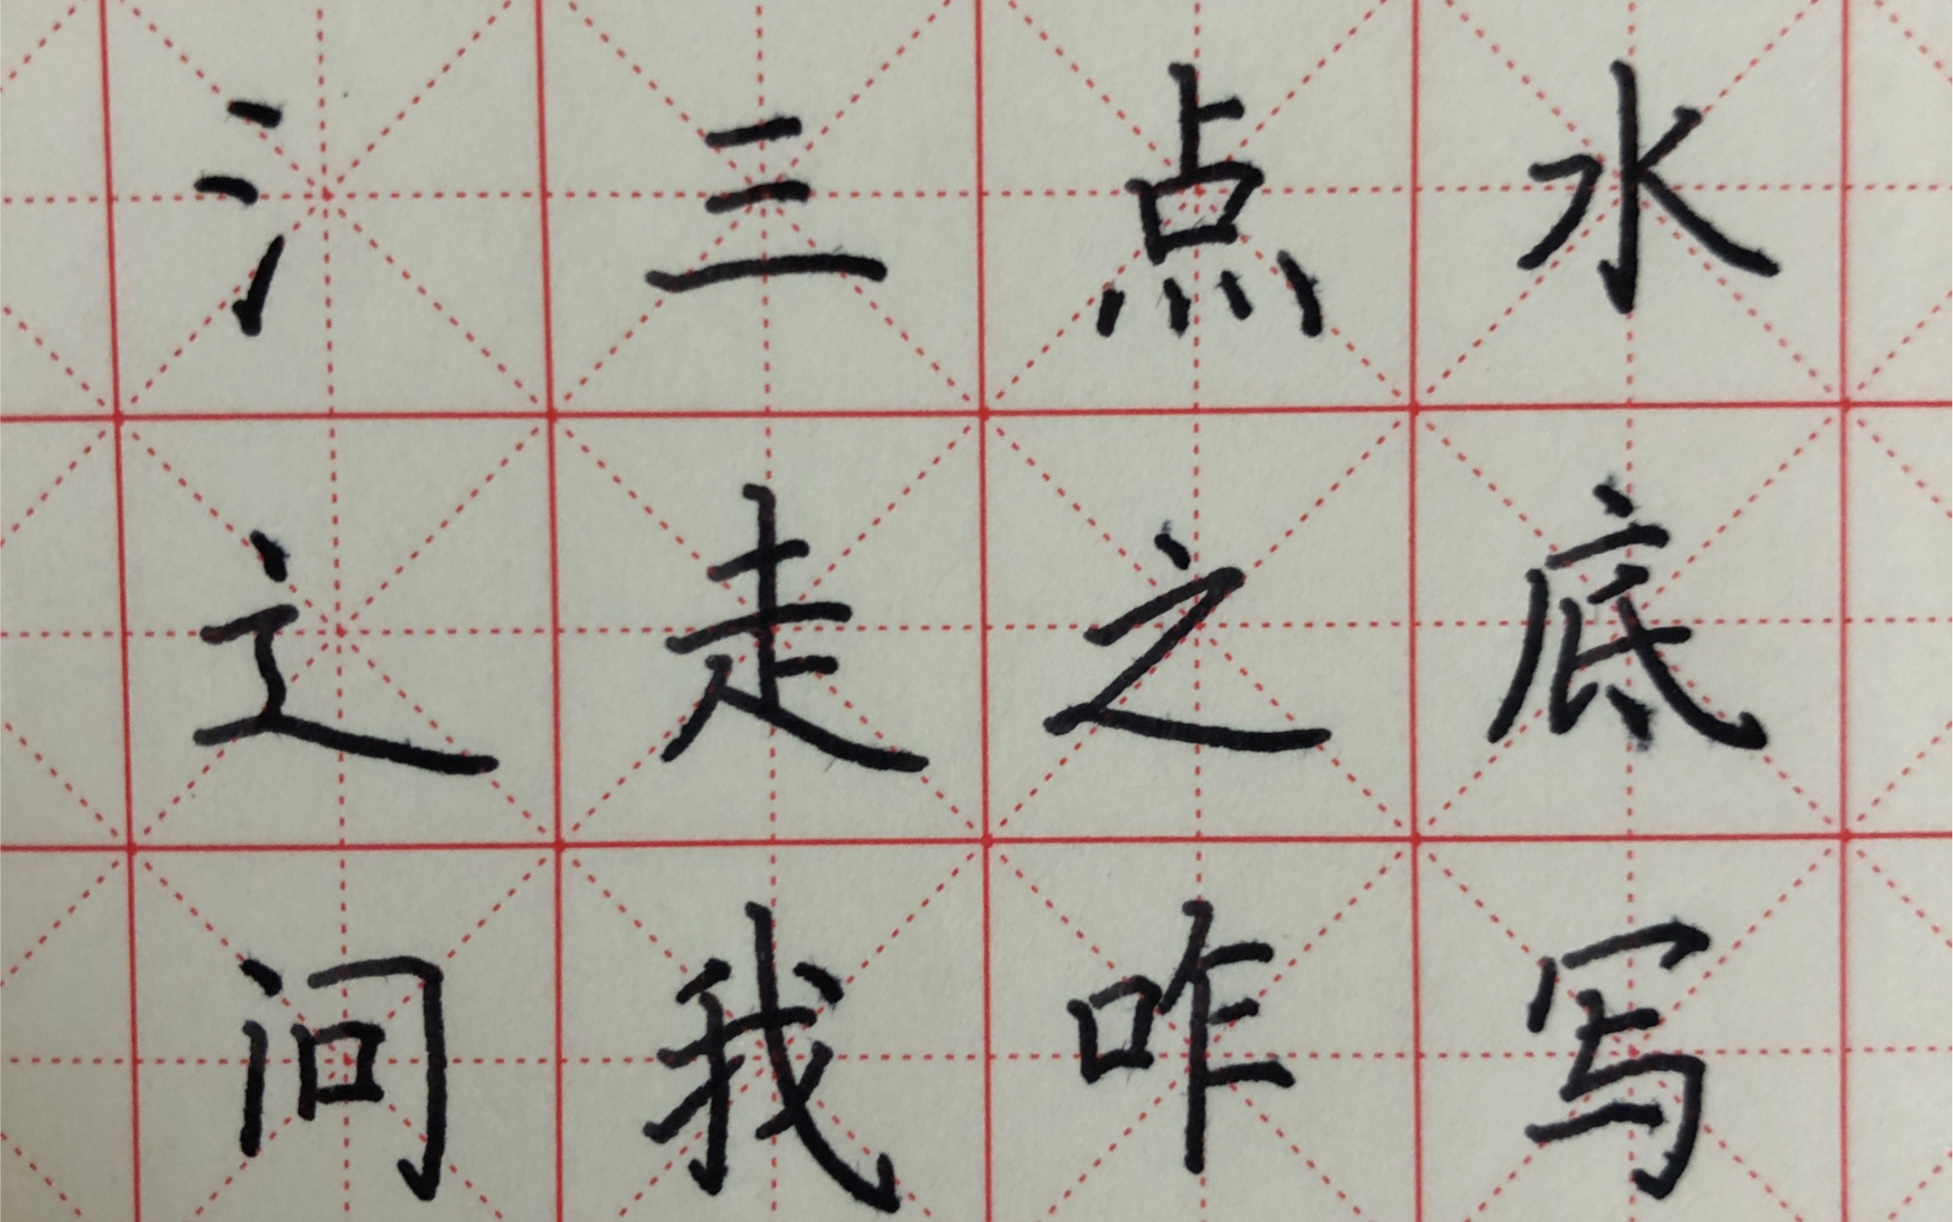 氵三点水
辶走之底
问我咋写